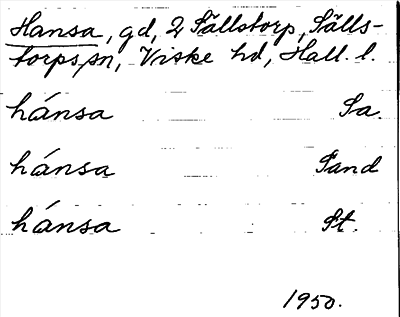 Hansa, gd, 2 Sällstorp, Sälls-
torps sn, Viske hd, Hall. l.
hánsa Sa.
hánsa Sand
hánsa St.
1950.